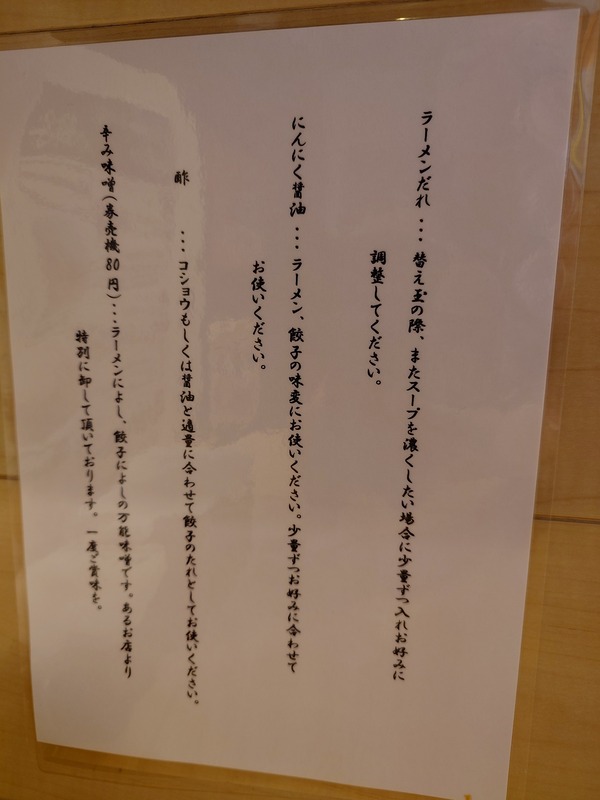 ラーメンだれ ･･･ 替え玉の際、またスープを濃くしたい場合に少量ずつ入れお好みに
調整してください。
にんにく醤油 ･･･ ラーメン、餃子の味変にお使いください。少量ずつお好みに合わせて
お使いください。
酢 ･･･ コショウもしくは醤油と適量に合わせて餃子のたれとしてお使いください。
辛み味噌(券売機80円)･･･ラーメンによし、餃子によしの万能味噌です。あるお店より
特別に卸して頂いております。一度ご賞味を。